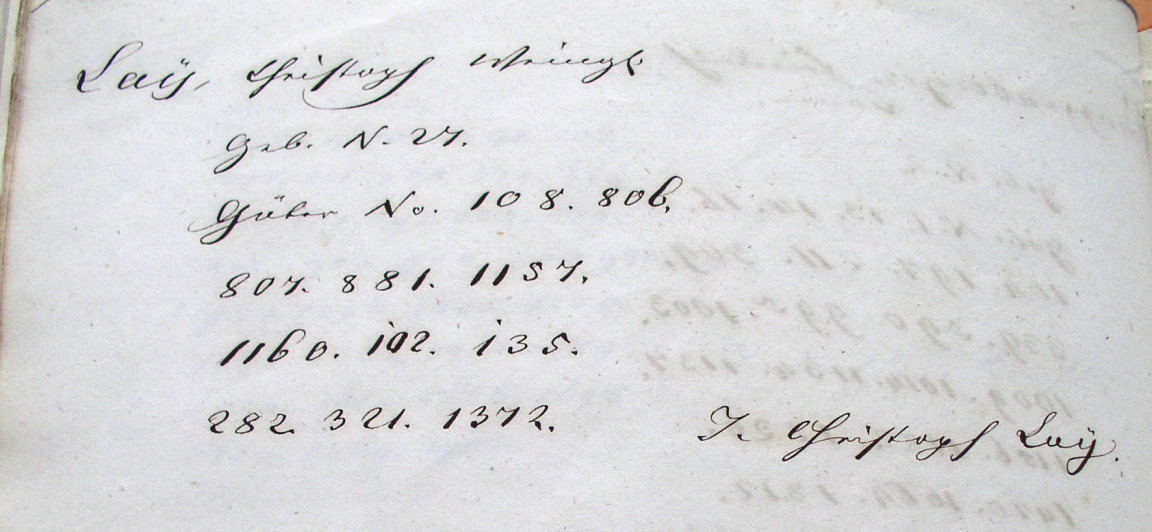 Laÿ, Christoph Weingt.
Geb. N. 27.
Güter No. 108. 806.
807. 881. 1157.
1160. 102. 135.
282. 321. 1372.
J. Christoph Laÿ.